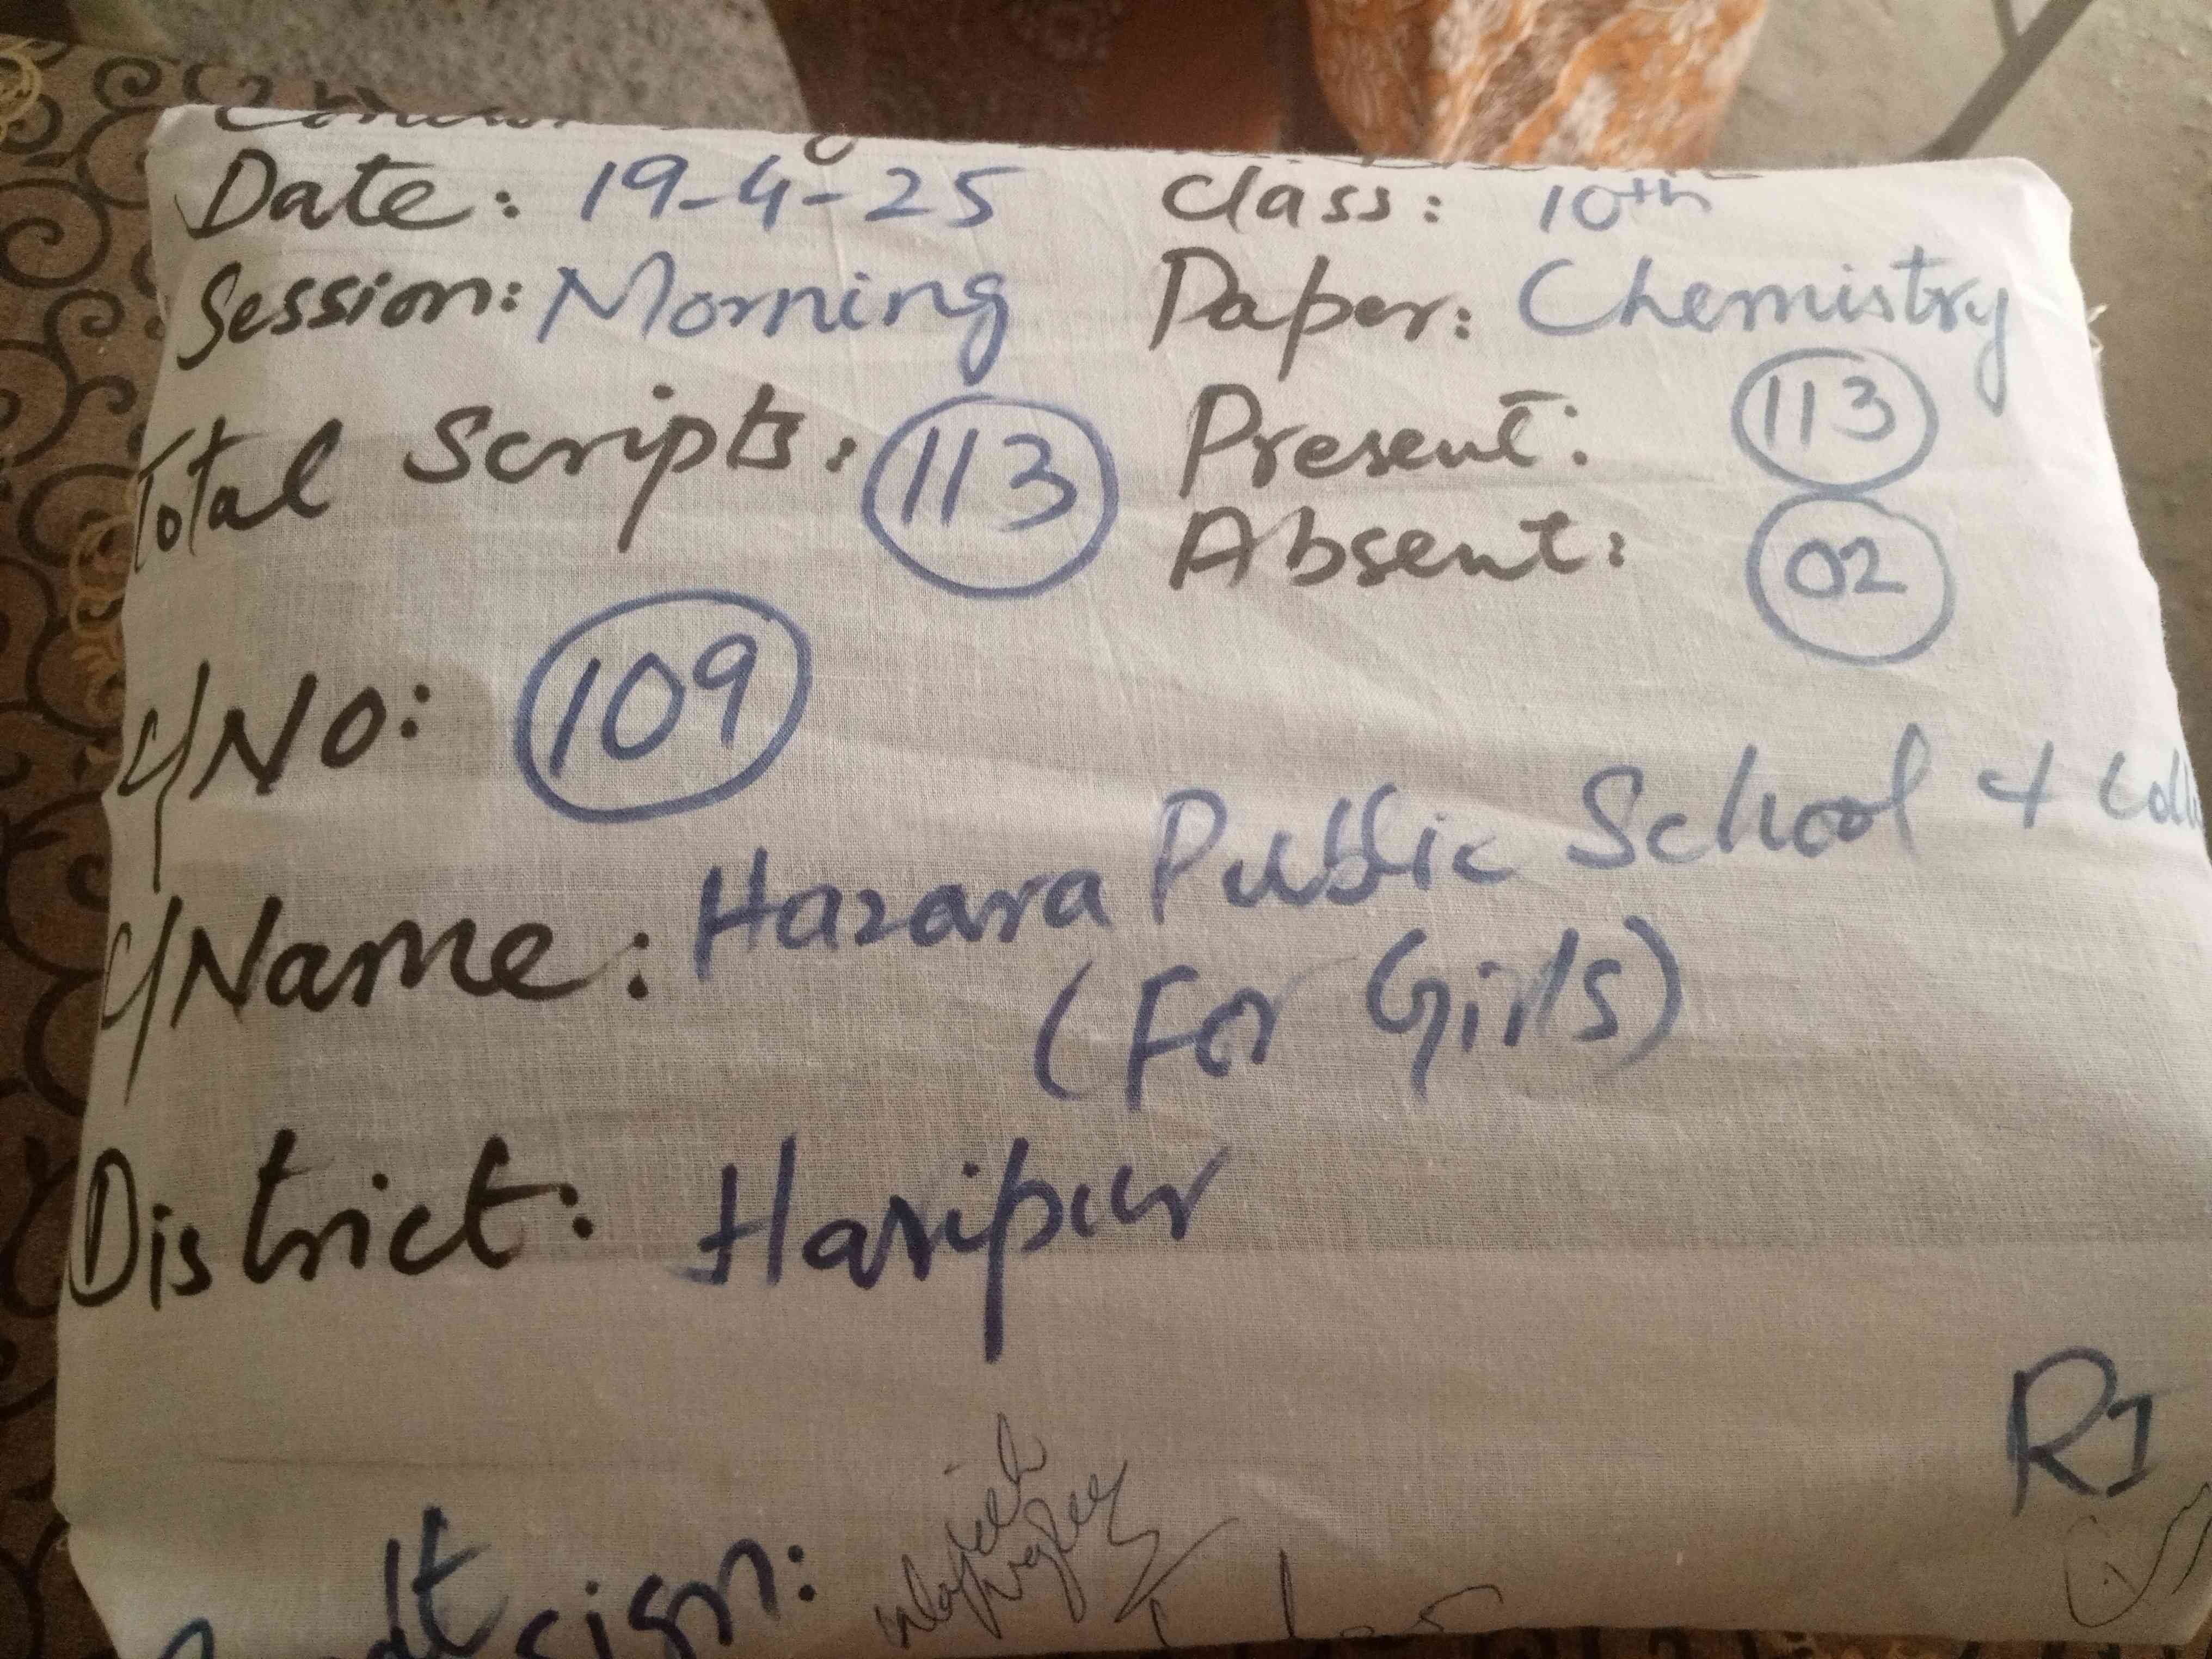 Date: 19-4-25 Class: 10th
Session: Morning Paper: Chemistry
Total Scripts: 113 Present: 113
Absent: 02
C/No: 109
C/Name: Hazara Public School &
(For Girls)
District: Haripur
RI
Sign: